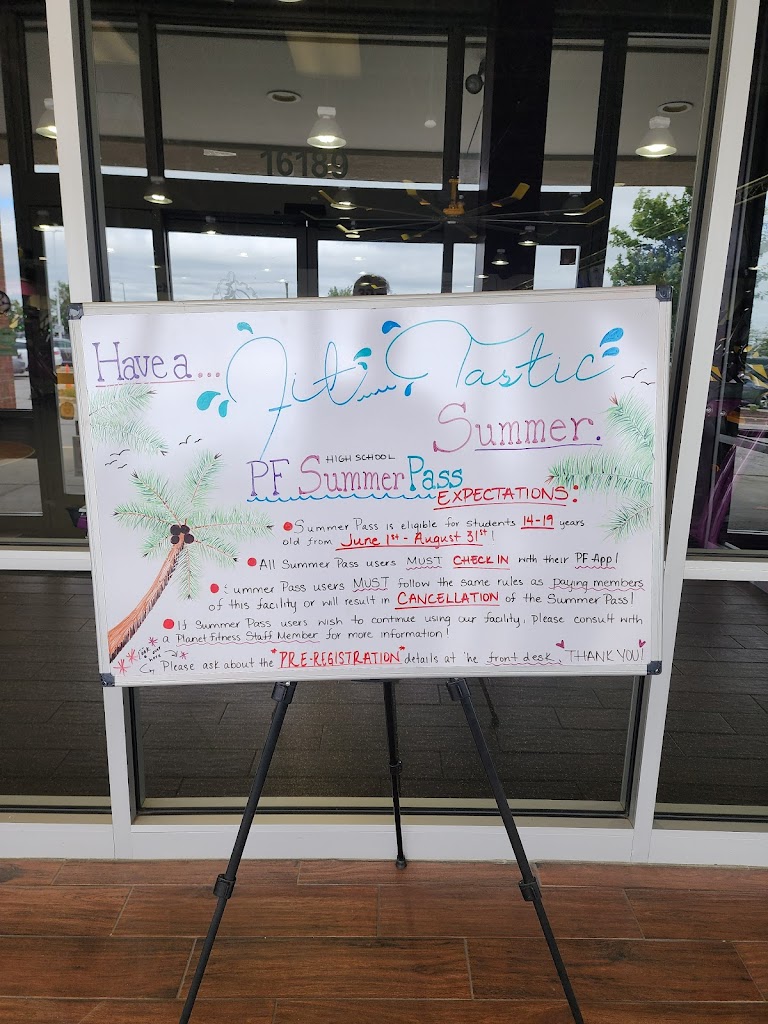 16189
Have a ... Fit... Tastic
Summer.
HIGH SCHOOL
PF Summer Pass
EXPECTATIONS:
Summer Pass is eligible for students 14-19 years
old from June 1st - August 31st!
All Summer Pass users MUST CHECK IN with their PF App!
Summer Pass users MUST follow the same rules as paying members
of this facility or will result in CANCELLATION of the Summer Pass!
If Summer Pass users wish to continue using our facility, please consult with
a Planet Fitness Staff Member for more information!
Please ask about the "PRE-REGISTRATION" details at the front desk, THANK YOU!